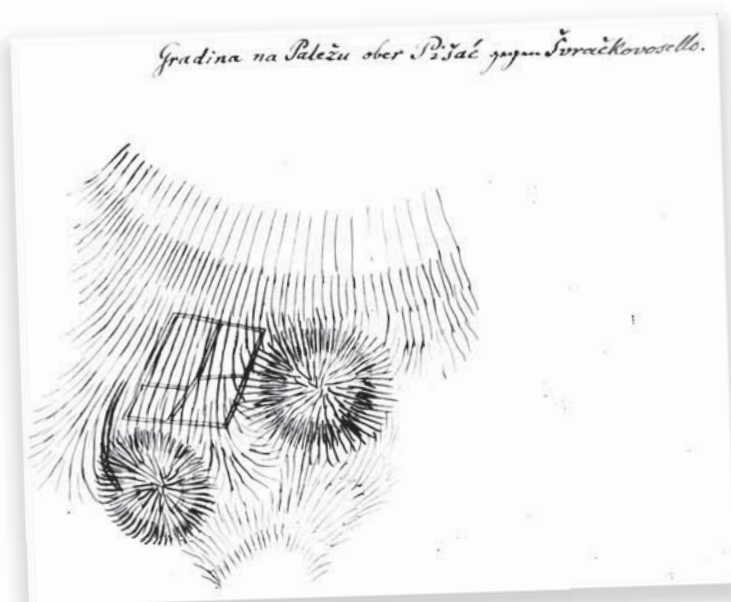 Gradina na Paležu ober Pišać gegen Švračkovosello.